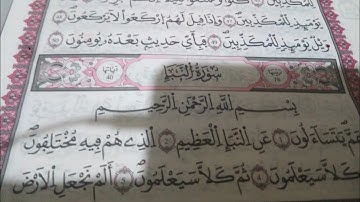 لِلْمُكَذِّبِينَ
يَوْمَئِذٍ لِّلْمُكَذِّبِينَ ۝ وَإِذَا قِيلَ لَهُمُ ارْكَعُوا لَا يَرْكَعُونَ
وَيْلٌ يَوْمَئِذٍ لِّلْمُكَذِّبِينَ ۝ فَبِأَيِّ حَدِيثٍ بَعْدَهُ يُؤْمِنُونَ
سُورَةُ النَّبَإِ
بِسْمِ اللَّهِ الرَّحْمَٰنِ الرَّحِيمِ
عَمَّ يَتَسَاءَلُونَ ۝ عَنِ النَّبَإِ الْعَظِيمِ ۝ الَّذِي هُمْ فِيهِ مُخْتَلِفُونَ
كَلَّا سَيَعْلَمُونَ ۝ ثُمَّ كَلَّا سَيَعْلَمُونَ ۝ أَلَمْ نَجْعَلِ الْأَرْضَ